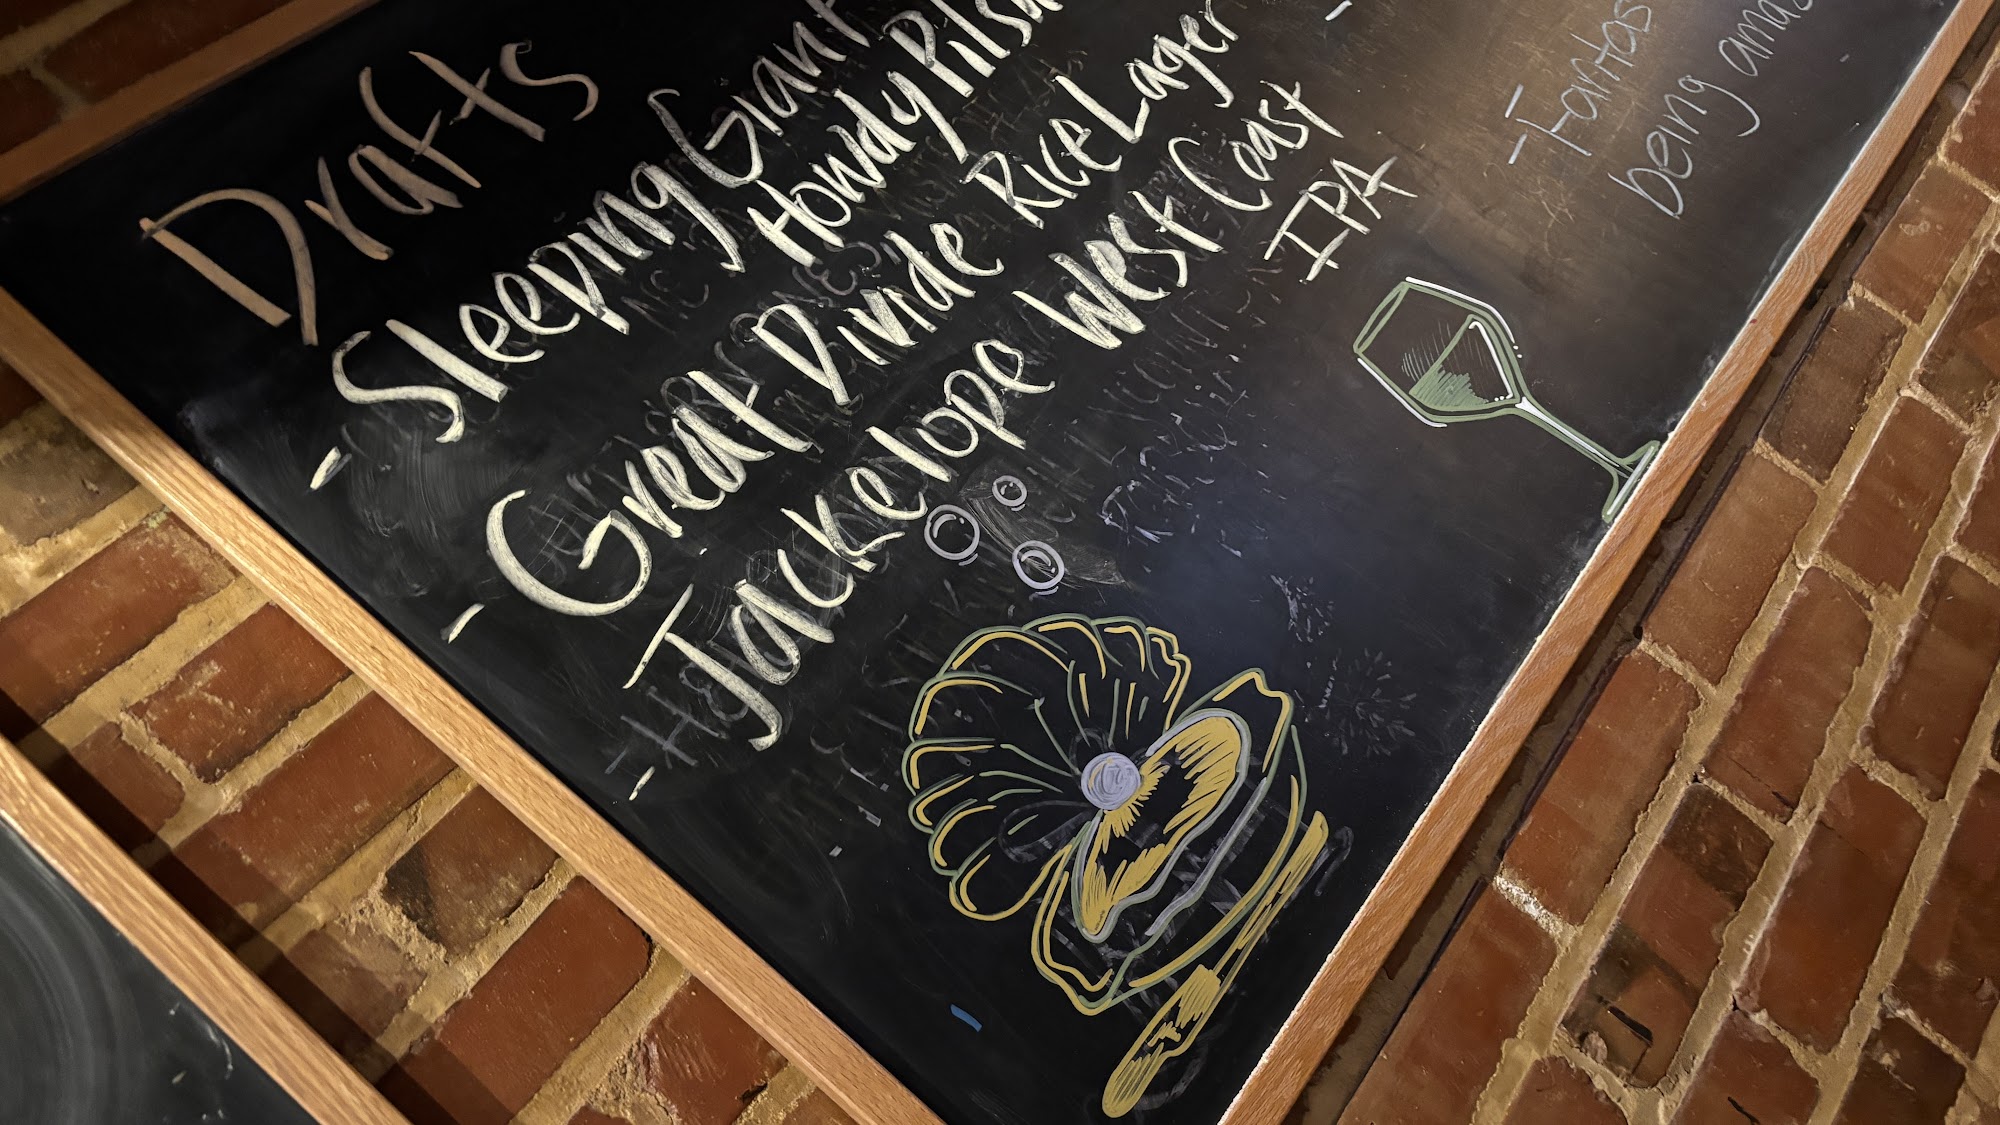 Drafts
- Sleeping Giant
Howdy Pils
- Great Divide Rice Lager
- Jackelope West Coast
IPA
- Fantas
being ama